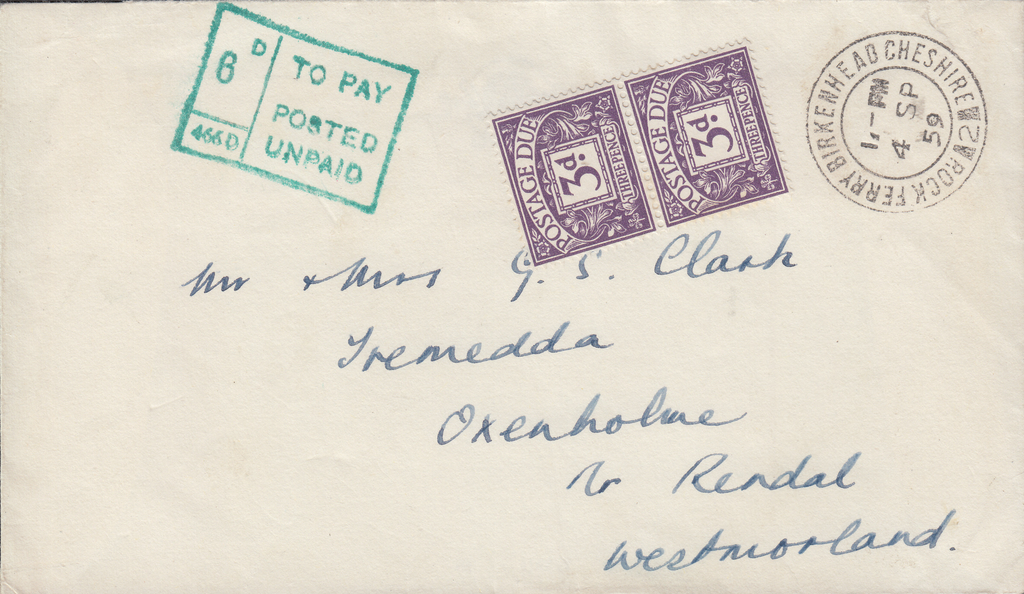 6D TO PAY
POSTED
UNPAID
466D
POSTAGE DUE
3d.
THREEPENCE
POSTAGE DUE
3d.
THREEPENCE
ROCK FERRY BIRKENHEAD CHESHIRE
4 SP
59
Mr + Mrs G. S. Clark
Tremedda
Oxenholme
Nr Kendal
Westmorland.